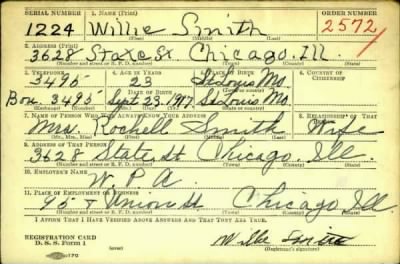 SERIAL NUMBER 1. NAME ORDER NUMBER
1224 Willie Smith 2572
2. ADDRESS (PRINT)
3628 State St Chicago, Ill.
(Number and street or R. F. D. number)
3. TELEPHONE 4. AGE IN YEARS 5. PLACE OF BIRTH 6. COUNTRY OF CITIZENSHIP
3495 23 St Louis Mo
DATE OF BIRTH
3495 Sept 23-1917 St Louis Mo
7. NAME OF PERSON WHO WILL ALWAYS KNOW YOUR ADDRESS 8. RELATIONSHIP OF THAT PERSON
Mrs. Rochell Smith Wife
(Mr., Mrs., Miss)
9. ADDRESS OF THAT PERSON
3628 State St Chicago, Ill.
(Number and street or R. F. D. number)
10. EMPLOYER'S NAME
W. P. A
11. PLACE OF EMPLOYMENT OR BUSINESS
95 + Union St Chicago Ill
(Number and street or R. F. D. number)
I AFFIRM THAT I HAVE VERIFIED ABOVE ANSWERS AND THAT THEY ARE TRUE.
REGISTRATION CARD
D. S. S. Form 1 Willie Smith
(Registrant's signature)